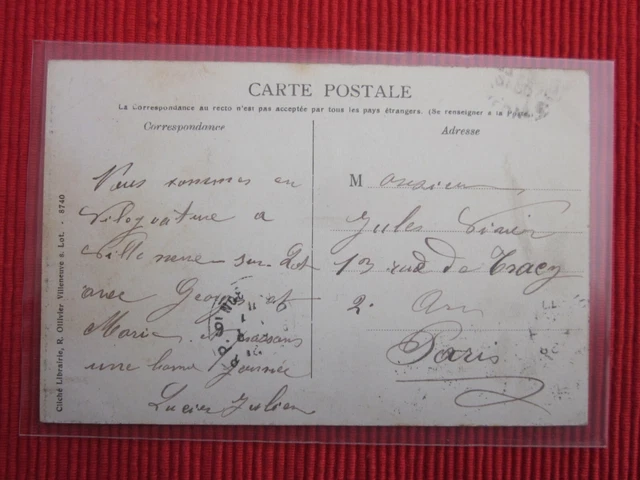 CARTE POSTALE
La Correspondance au recto n'est pas acceptée par tous les pays étrangers. (Se renseigner à la Poste)
Correspondance
Adresse
Vous sommes en
Villegvature a
Villeneuve sur Lot
avec Georges et
Marie et passons
une bonne journée
Lucien Julien
Monsieur
Jules
13 rue de Tracy
2e Arr
Paris
Cliché Librairie, R. Ollivier Villeneuve s. Lot. - 8740